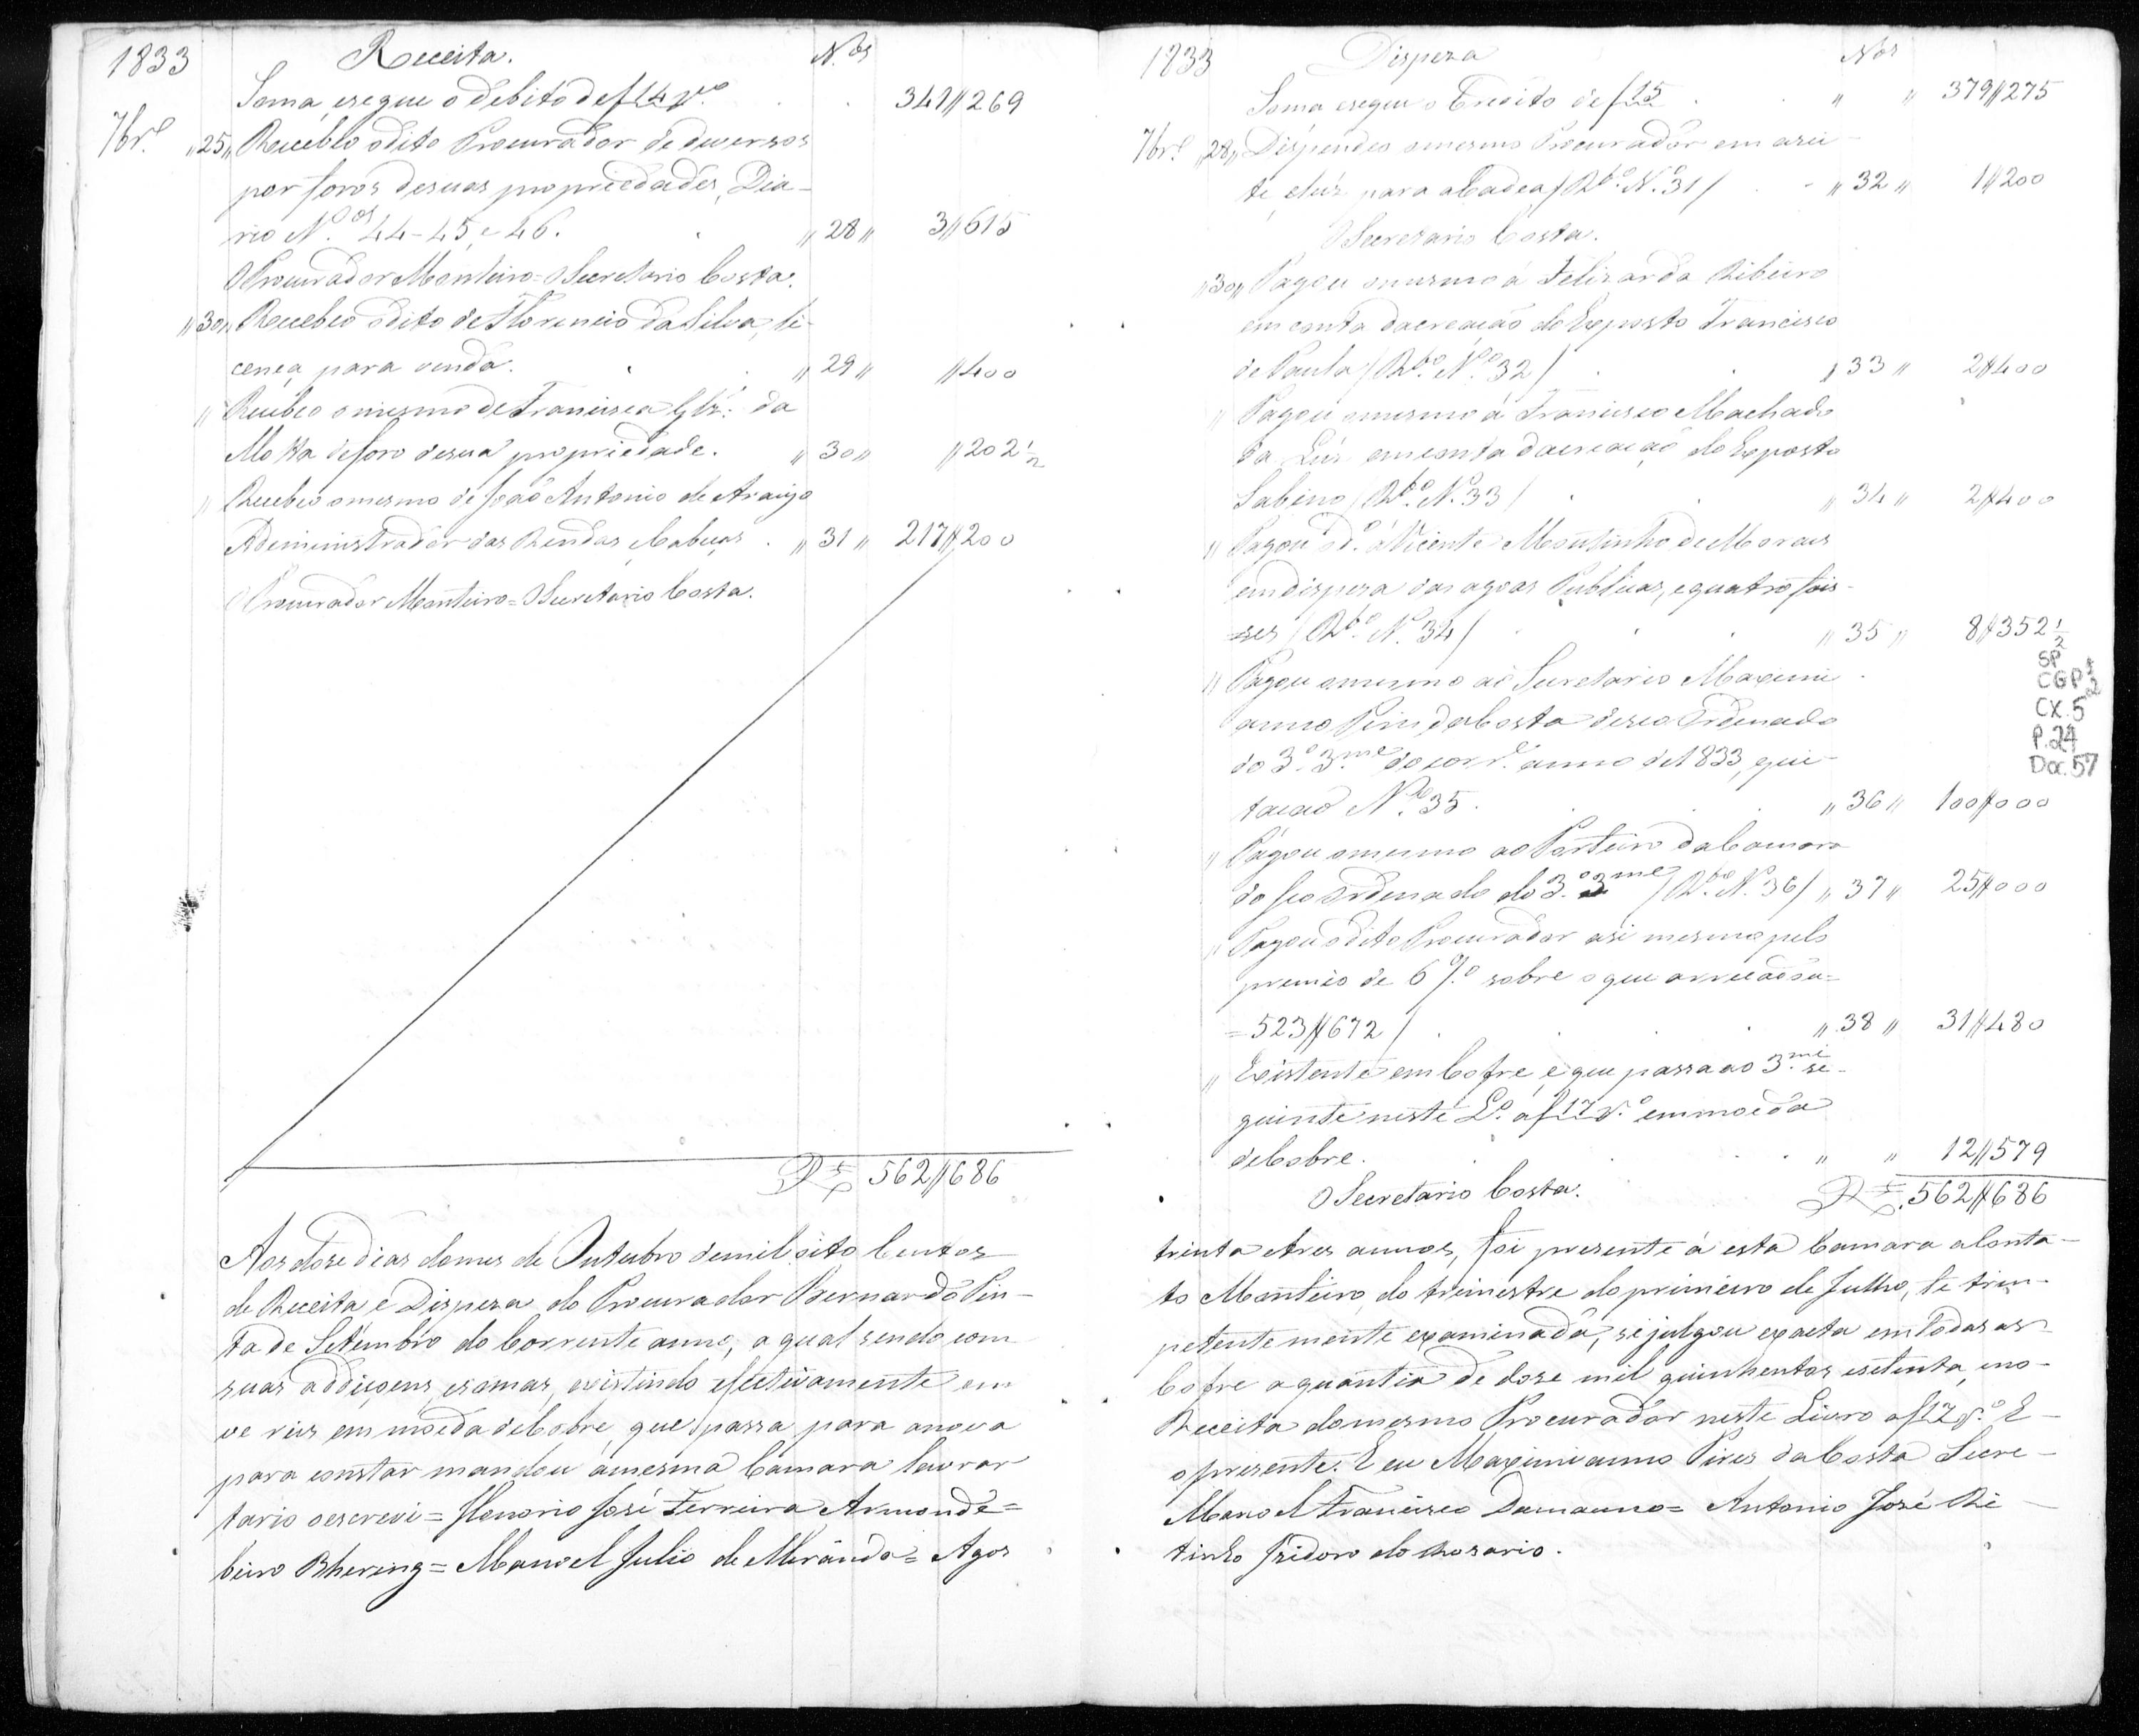 1833 Receita. N.os
Soma, e segue o debito de f 14 v.o 341//269
7br.o „25„ Recebeo o dito Procurador de diversos
por foros de suas propriedades, Dia-
rio N.os 44-45, e 46. „ 28 „ 3//615
O Procurador Monteiro = O Secretario Costa.
„30„ Recebeo o dito de Florencio da Silva, li-
cença para venda. „ 29 „ //400
„ Recebeo o mesmo de Francisca Glz.' da
Motta de foro de sua propriedade. „ 30 „ //202 1/2
„ Recebeo o mesmo de João Antonio de Araujo
Administrador das Rendas, e Cabeças. „ 31 „ 217//200
O Procurador Monteiro = O Secretario Costa.
R.s 562//686
Aos dose dias do mes de Outubro de mil oito Centos
de Receita e Dispeza do Procurador Bernardo Pin-
ta de Setembro do Corrente anno, a qual sendo com
suas addiçoens, e somas, existindo efectivamente em
ve reis em moeda de Cobre, que passa para a nova
para constar mandou a mesma Camara lavrar
tario o escrevi = Honorio José Ferreira Armonde =
beiro Bhering = Manoel Julio de Miranda = Agos
1833 Dispeza N.os
Soma, e segue o Credito de f 15 „ „ 379//275
7br.o „28„ Dispendeo o mesmo Procurador em asei-
te, e luz para a Cadea / R.bo N.o 31 / „ 32 „ 1//200
O Secretario Costa.
„30„ Pagou o mesmo á Felizarda Ribeiro
em conta da creação do Exposto Francisco
de Paula / R.bo N.o 32 / „ 33 „ 2//400
„ Pagou o mesmo á Francisco Machado
da Luz em conta da creação do Exposto
Sabino / R.bo N.o 33 / „ 34 „ 2//400
„ Pagou o d.o á Vicente Moutinho de Moraes
em dispeza das agoas Publicas, e quatro foi-
ses / R.bo N.o 34 / „ 35 „ 8//352 1/2
SP
CGP 1/2
CX. 5
P. 24
Doc. 57
„ Pagou o mesmo ao Secretario Maximi-
anno Pires da Costa de seo Ordenado
do 3.o 3.me do corr.e anno de 1833, qui-
tação N.o 35. „ 36 „ 100//000
„ Pagou o mesmo ao Porteiro da Camara
do seo Ordenado do 3.o 3.me / R.bo N.o 36 / „ 37 „ 25//000
„ Pagou o dito Procurador a si mesmo pelo
premio de 6 p.% sobre o que arrecadou =
= 523//672 / „ 38 „ 31//480
„ Existente em Cofre, e que passa ao 3.me se-
guinte neste L.o a f 17 v.o em moeda
de Cobre. „ „ 12//579
O Secretario Costa. R.s 562//686
trinta e tres annos, foi presente á esta Camara a Conta-
to Monteiro do trimestre do primeiro de Julho, te trin-
petente mente examinada, se julgou exacta em todas as
Cofre a quantia de dose mil quinhentos e setenta, e no-
Receita do mesmo Procurador neste Livro a f 17 v.o E
o presente. E eu Maximianno Pires da Costa Secre-
Manoel Francisco Damanno = Antonio José Ri-
tinho Izidoro do Rosario.